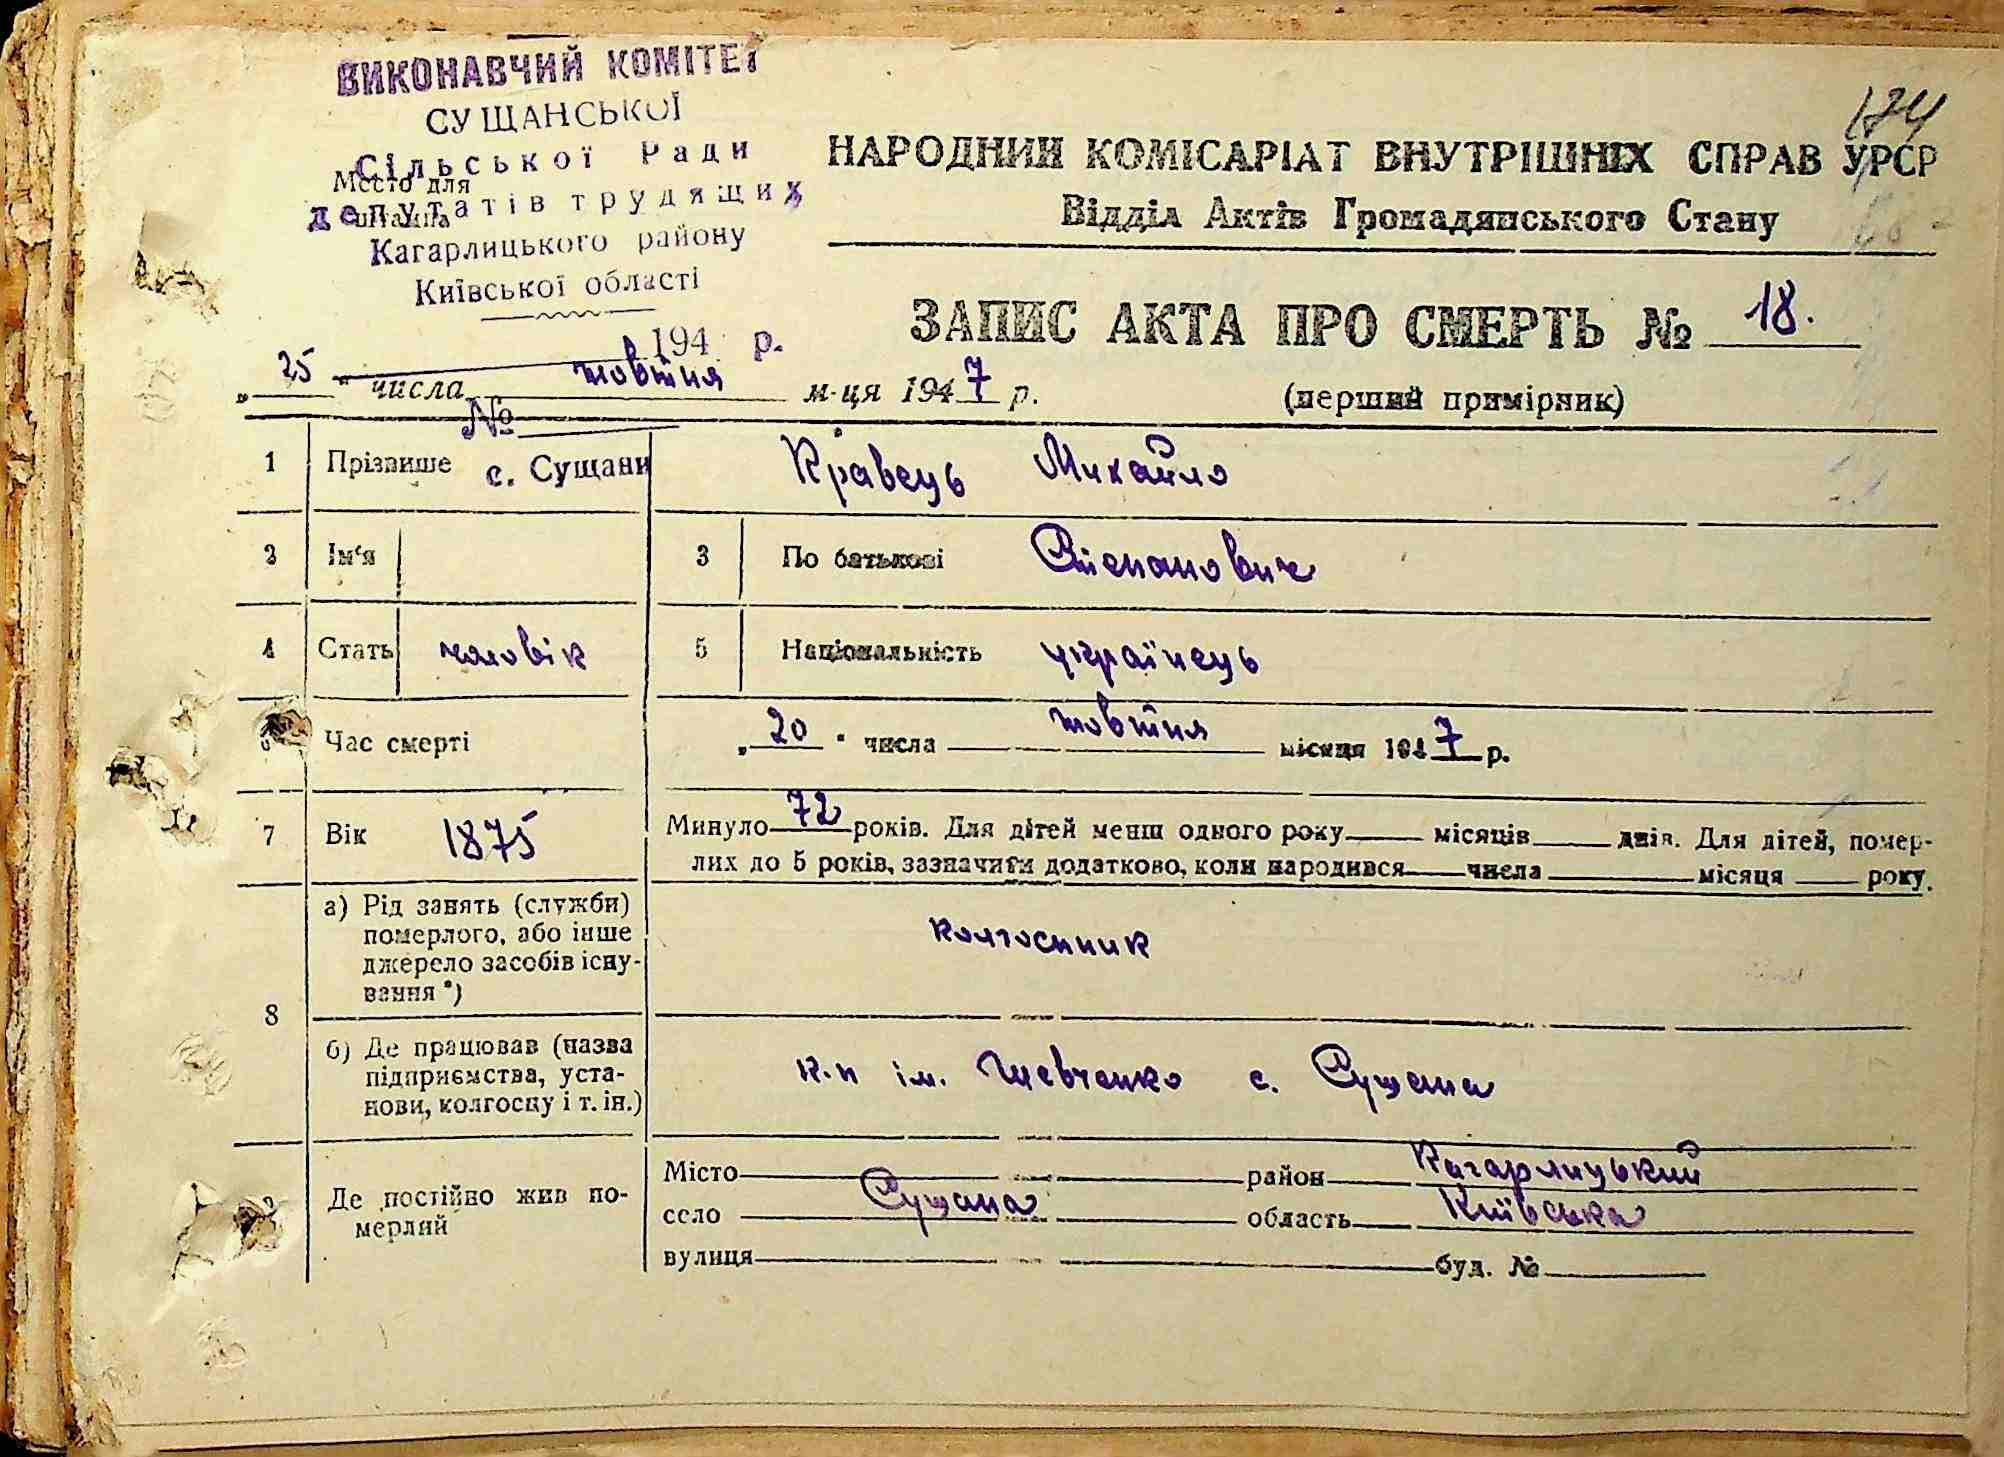 ВИКОНАВЧИЙ КОМІТЕТ
СУЩАНСЬКОЇ
Сільської Ради
Место для
штампа
депутатів трудящих
Кагарлицького району
Київської області
194 р.
№
с. Сущани
174
НАРОДНИЙ КОМІСАРІАТ ВНУТРІШНІХ СПРАВ УРСР
Відділ Актів Громадянського Стану
ЗАПИС АКТА ПРО СМЕРТЬ № 18.
„ 25 " числа жовтня м-ця 1947 р. (перший примірник)
1 Прізвище Кравець Михайло
2 Ім'я 3 По батькові Степанович
4 Стать чоловік 5 Національність українець
Час смерті „ 20 " числа жовтня місяця 1947 р.
7 Вік 1875 Минуло 72 років. Для дітей менш одного року місяців днів. Для дітей, помер-
лих до 5 років, зазначити додатково, коли народився числа місяця року.
8 а) Рід занять (служби)
померлого, або інше
джерело засобів існу-
вання *)
колгоспник
б) Де працював (назва
підприємства, уста-
нови, колгоспу і т. ін.)
к-п ім. Шевченко с. Сущана
Де постійно жив по-
мерлий
Місто район Кагарлицький
село Сущана область Київська
вулиця буд. №